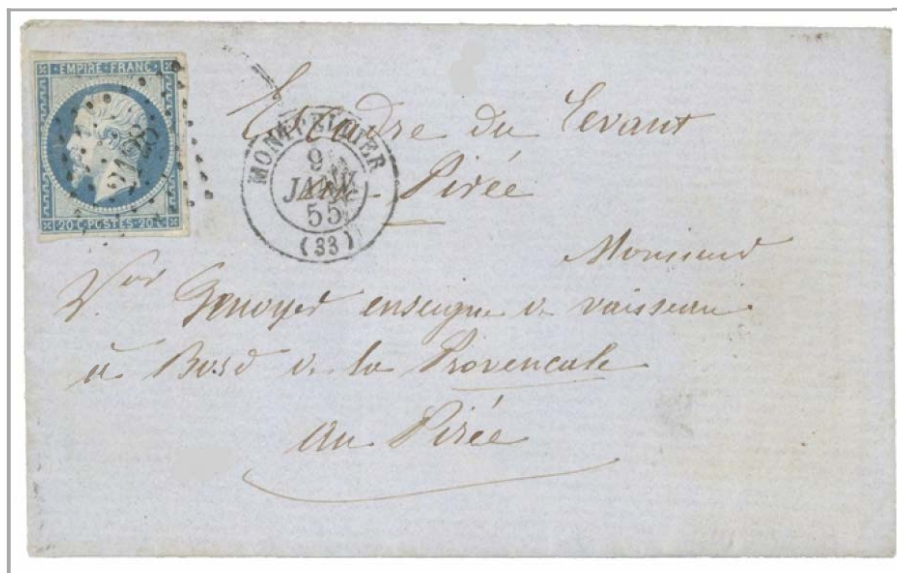 EMPIRE FRANC
2128
20 C POSTES 20 C
MONTPELLIER
9
JANV
55
(33)
Escadre du Levant
Pirée
Monsieur
Vor Genoyer enseigne de vaisseau
à Bord de la Provencale
au Pirée